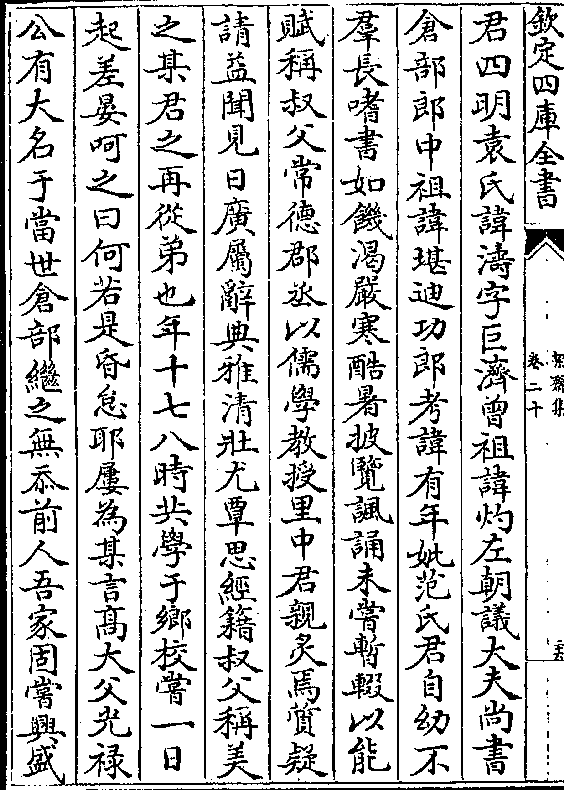 欽定四庫全書
絜齋集
卷二十
君四明袁氏諱濤字巨濟曾祖諱灼左朝議大夫尚書
倉部郎中祖諱堪迪功郎考諱有年妣范氏君自幼不
羣長嗜書如饑渴嚴寒酷暑披覽諷誦未嘗暫輟以能
賦稱叔父常德郡丞以儒學教授里中君親炙焉質疑
請益聞見日廣屬辭典雅清壯尤覃思經籍叔父稱美
之某君之再從弟也年十七八時共學于鄉校嘗一日
起差晏呵之曰何若是昏怠耶屢為某言髙大父光禄
公有大名于當世倉部繼之無忝前人吾家固嘗興盛